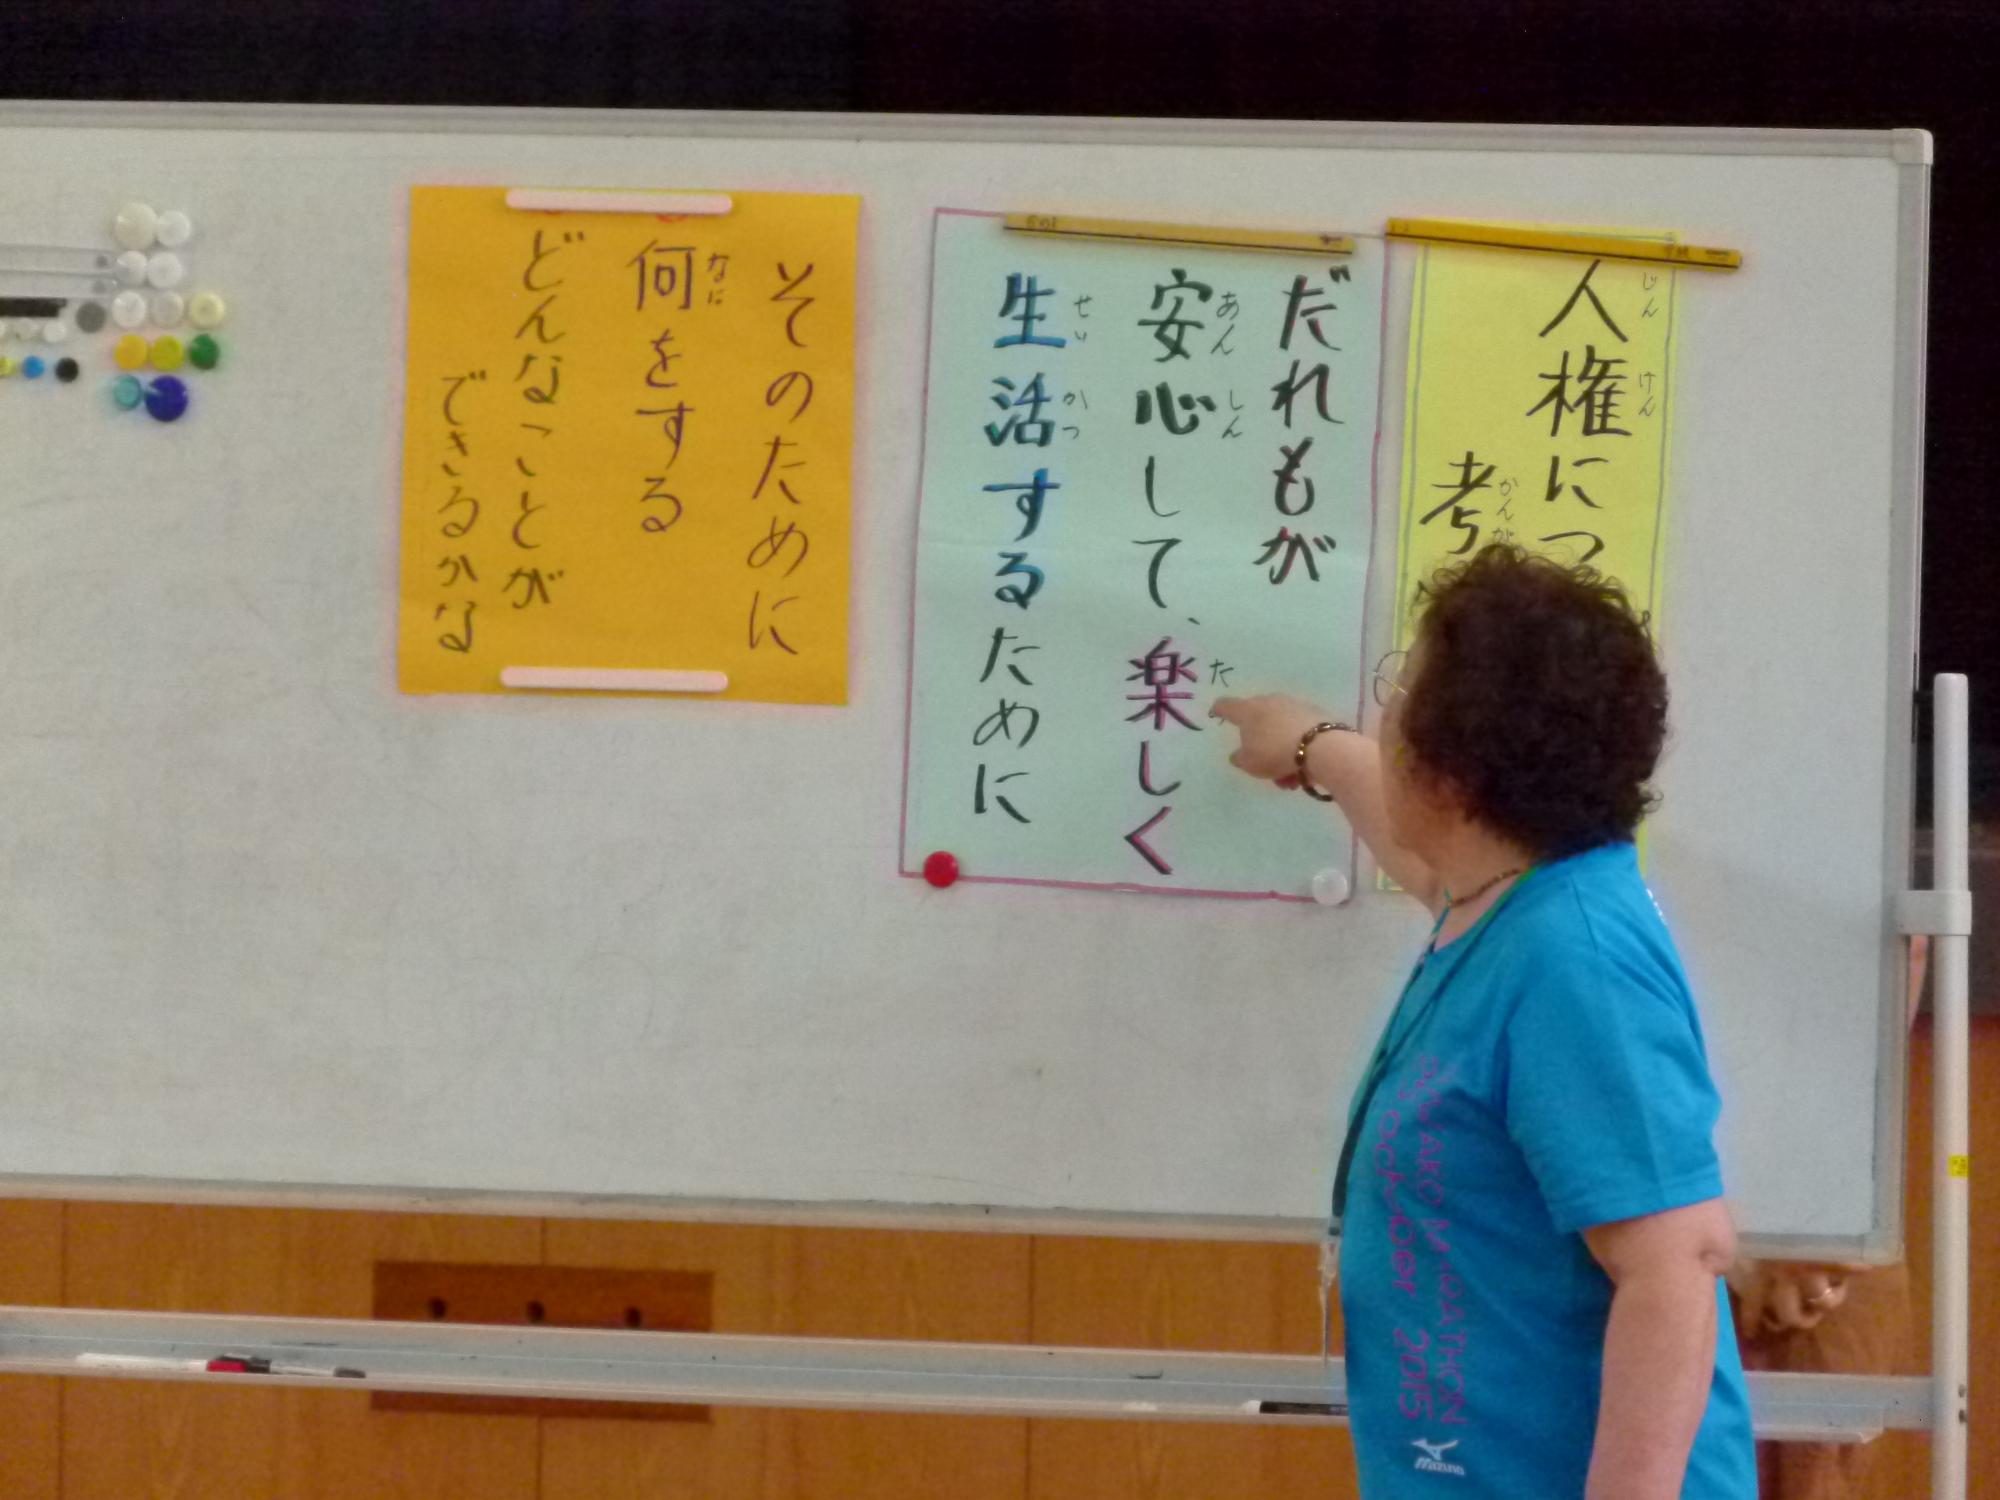 人権につ
じんけん
考
かんが
だれもが
安心して、楽しく
あんしん
た
生活するために
せいかつ
そのために
何をする
なに
どんなことが
できるかな
MARATHON
October 2015
Mizuno